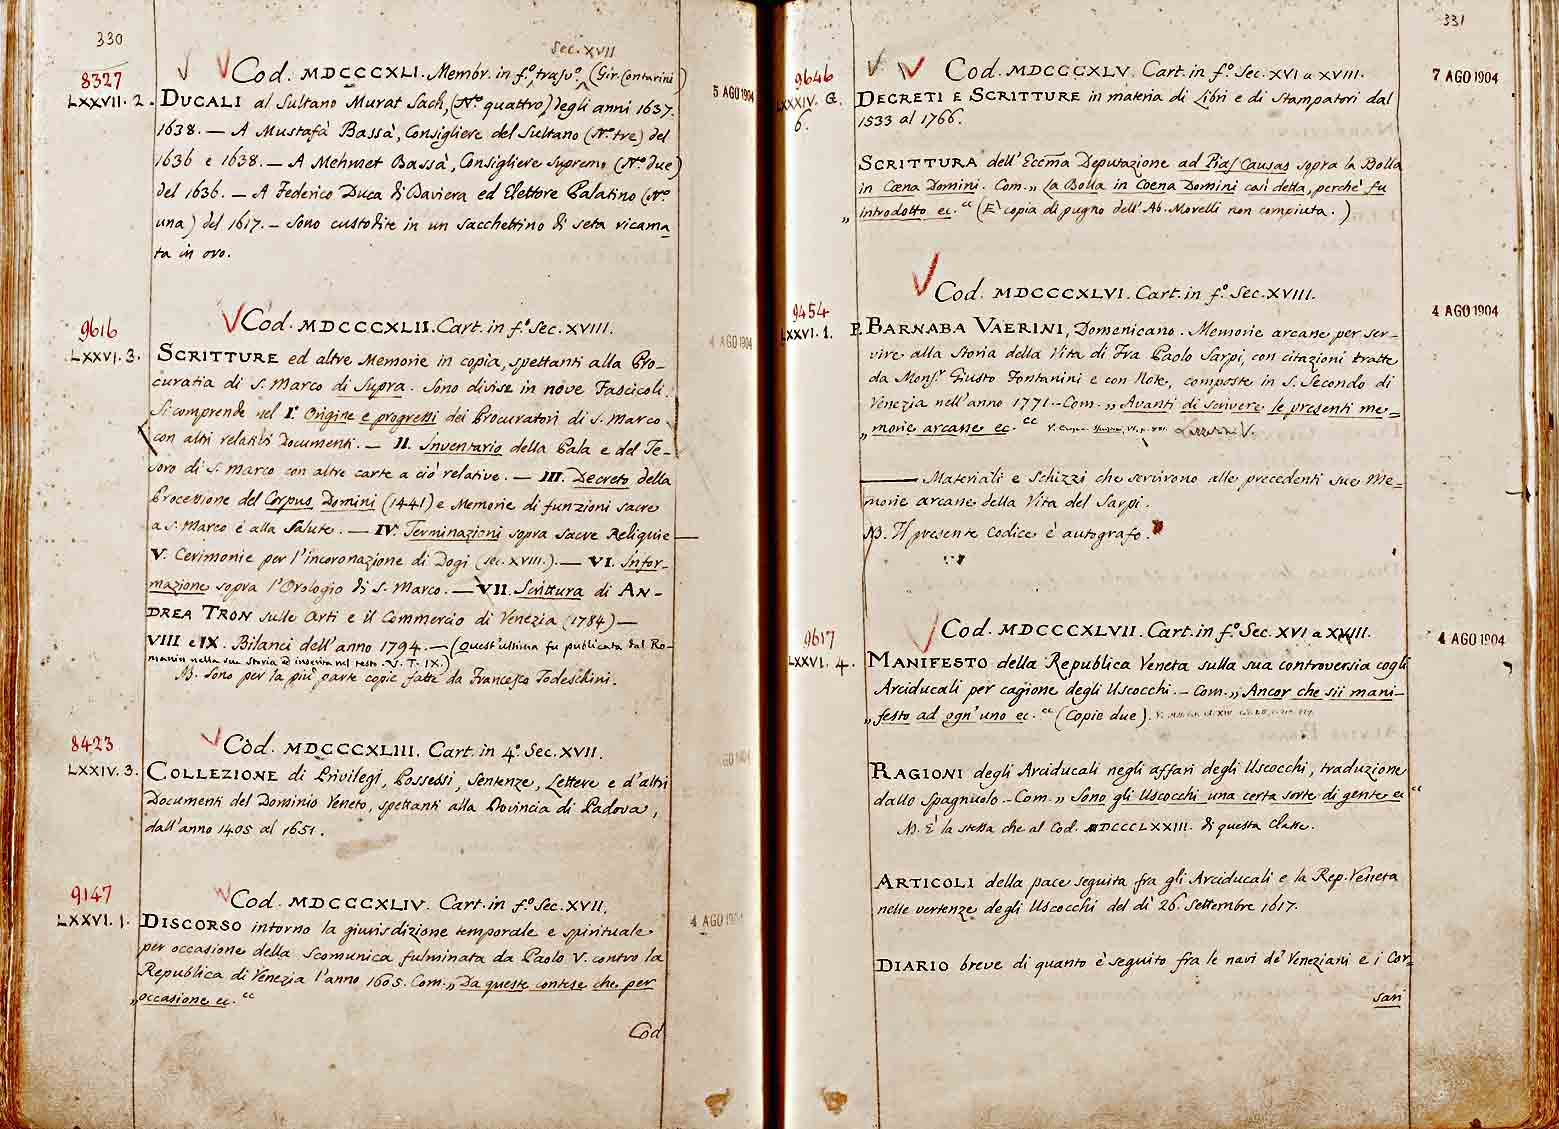 330
Sec. XVII
8327
LXXVII. 2.
Cod. MDCCCXLI. Membr. in f.º trasv.º (Gir. Contarini)
5 AGO 1904
DUCALI al Sultano Murat Sach, (Nº quattro) degli anni 1637.
1638. — A Mustafà Bassà, Consigliere del Sultano (Nº tre) del
1636 e 1638. — A Mehmet Bassà, Consigliere Supremo (Nº due)
del 1636. — A Federico Duca di Baviera ed Elettore Palatino (Nº
una) del 1617. — Sono custodite in un sacchettino di seta ricama
ta in oro.
9616
LXXVI. 3.
Cod. MDCCCXLII. Cart. in f.º Sec. XVIII.
4 AGO 1904
SCRITTURE ed altre Memorie in copia, spettanti alla Pro-
curatia di S. Marco di Supra. Sono divise in nove Fascicoli.
Si comprende nel I.º Origine e progressi dei Procuratori di S. Marco
con altri relativi Documenti. — II. Inventario della Pala e del Te-
soro di S. Marco con altre carte a ciò relative. — III. Decreto della
Processione del Corpus Domini (1441) e Memorie di funzioni sacre
a S. Marco e alla Salute. — IV. Terminazioni sopra sacre Reliquie —
V. Cerimonie per l'incoronazione di Dogi (sec. XVIII.). — VI. Infor-
mazione sopra l'Orologio di S. Marco. — VII. Scrittura di AN-
DREA TRON sulle Arti e il Commercio di Venezia (1784) —
VIII e IX. Bilanci dell'anno 1794. — (Quest'ultima fu publicata dal Ro-
manin nella sua storia e inserita nel testo. V. T. IX.)
N. Sono per la più parte copie fatte da Francesco Todeschini.
8423
LXXIV. 3.
Còd. MDCCCXLIII. Cart. in 4.º Sec. XVII.
AGO 1904
COLLEZIONE di Privilegi, Possessi, Sentenze, Lettere e d'altri
Documenti del Dominio Veneto, spettanti alla Provincia di Padova,
dall'anno 1405 al 1651.
9147
LXXVI. 1.
Cod. MDCCCXLIV. Cart. in f.º Sec. XVII.
4 AGO 1904
DISCORSO intorno la giurisdizione temporale e spirituale
per occasione della Scomunica fulminata da Paolo V. contro la
Republica di Venezia l'anno 1605. Com. „ Da queste contese che per
„ occasione ec. “
Cod
331
9646
LXXXIV. G.
6.
Cod. MDCCCXLV. Cart. in f.º Sec. XVI a XVIII.
7 AGO 1904
DECRETI E SCRITTURE in materia di Libri e di Stampatori dal
1533 al 1766.
SCRITTURA dell'Eccma Deputazione ad Pias Causas sopra la Bolla
in Cœna Domini. Com. „ La Bolla in Coena Domini così detta, perchè fu
„ introdotto ec. “ (E' copia di pugno dell'Ab. Morelli non compiuta.)
9454
LXXVI. 1.
Cod. MDCCCXLVI. Cart. in f.º Sec. XVIII.
4 AGO 1904
P. BARNABA VAERINI, Domenicano. Memorie arcane per ser-
vire alla Storia della Vita di Fra Paolo Sarpi, con citazioni tratte
da Mons.r Giusto Fontanini e con Note, composte in S. Secondo di
Venezia nell'anno 1771. — Com. „ Avanti di scrivere le presenti me=
„ morie arcane ec. “
— Materiali e Schizzi che servirono alle precedenti sue Me-
morie arcane della Vita del Sarpi.
N. Il presente Codice è autografo.
9617
LXXVI. 4.
Cod. MDCCCXLVII. Cart. in f.º Sec. XVI a XVIII.
4 AGO 1904
MANIFESTO della Republica Veneta sulla sua controversia cogli
Arciducali per cagione degli Uscocchi. — Com. „ Ancor che sii mani-
„ festo ad ogn'uno ec. “ (Copie due).
RAGIONI degli Arciducali negli affari degli Uscocchi, traduzione
dallo Spagnuolo. — Com. „ Sono gli Uscocchi una certa sorte di gente ec “
N. È la stessa che al Cod. MDCCCLXXIII. di questa Classe.
ARTICOLI della pace seguita fra gli Arciducali e la Rep. Veneta
nelle vertenze degli Uscocchi del dì 26. Settembre 1617.
DIARIO breve di quanto è seguito fra le navi de' Veneziani e i Cor=
sari